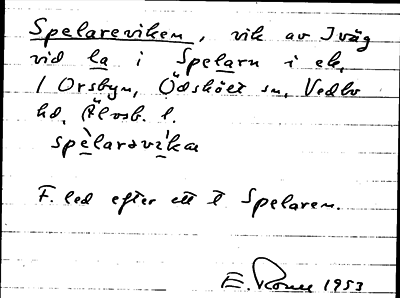 Spelareviken, vik av Iväg
vid la i Spelarn i ek,
1 Orsbyn, Ödsköet sn, Vedbo
hd, Älvsb. l.
spèlarsvìka
F. led efter ett † Spelaren.
E. 1953